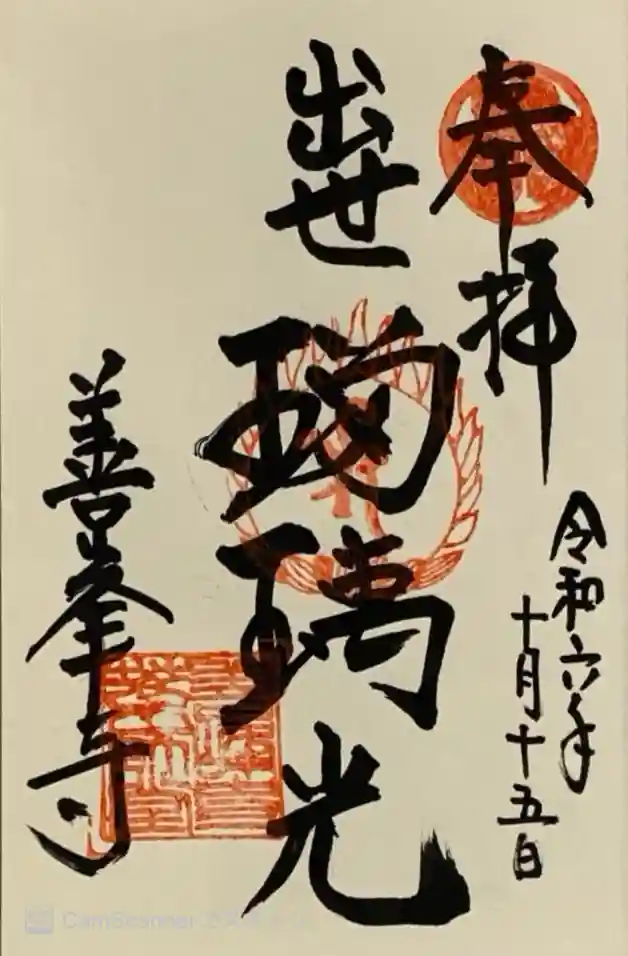 奉拝
令和六年
十月十五日
出世
瑠璃光
善峯寺
CamScanner